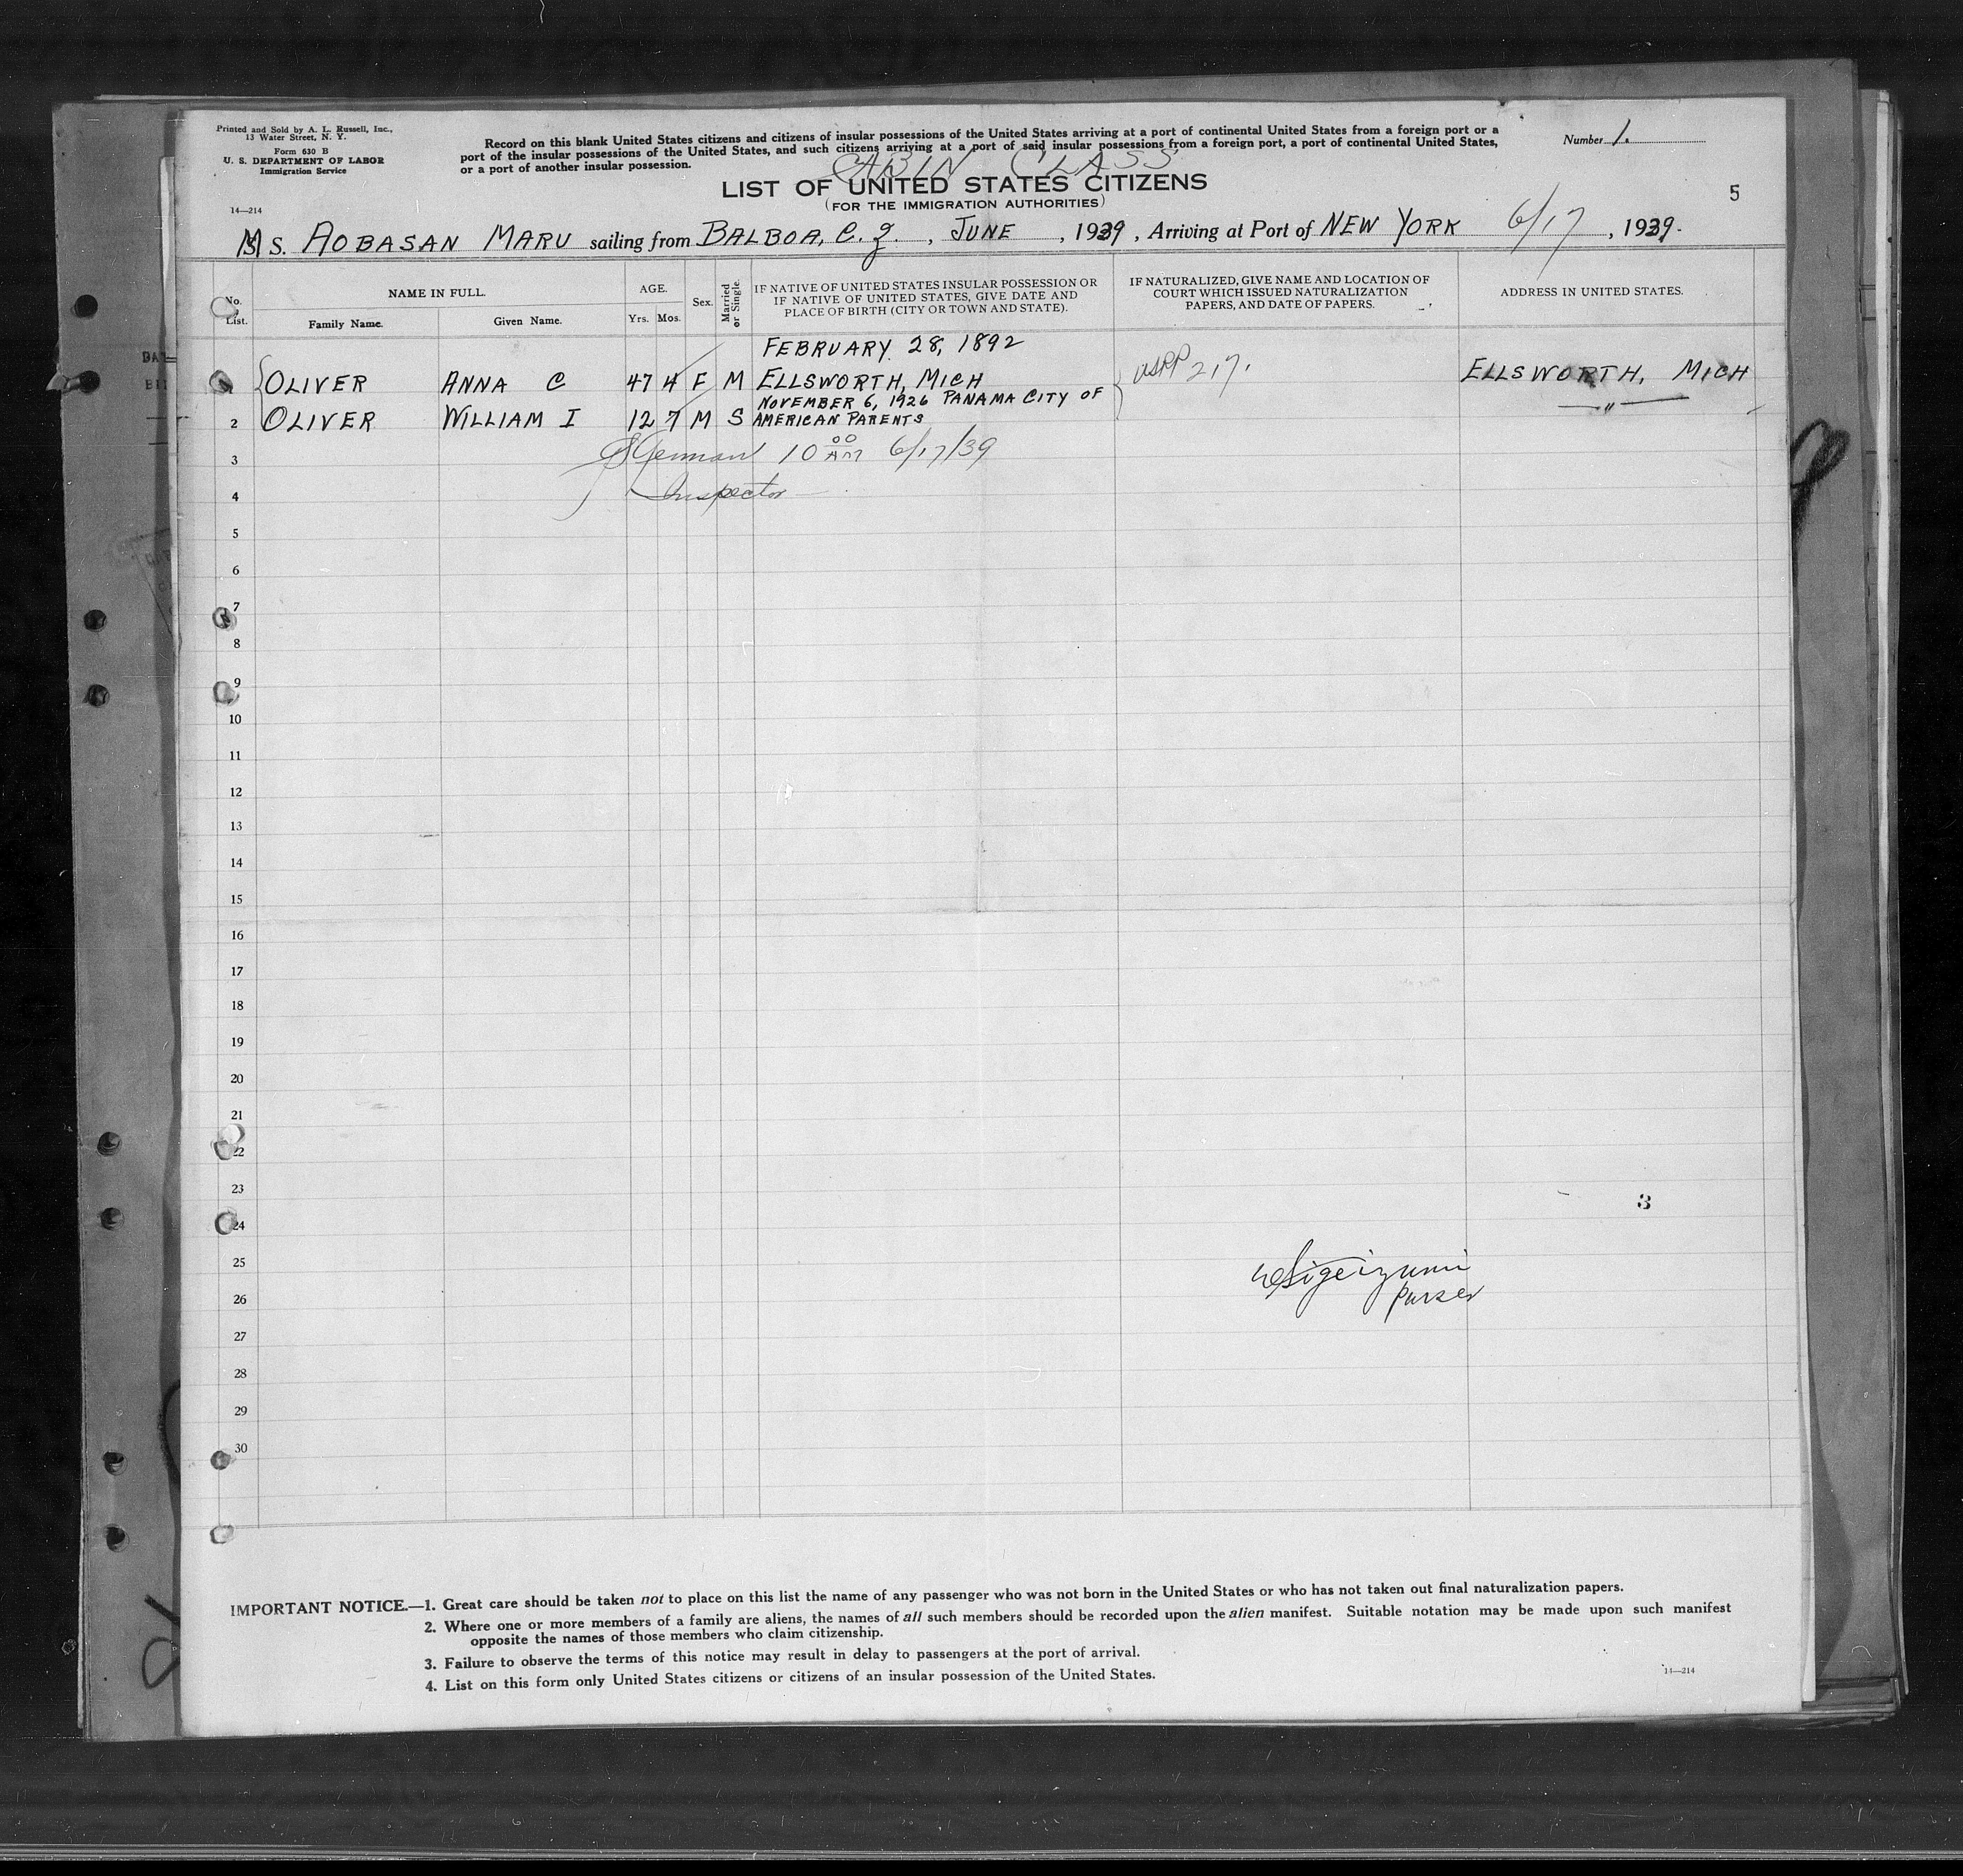 Printed and Sold by A. L. Russell, Inc.,
13 Water Street, N. Y.
Form 630 B
U. S. DEPARTMENT OF LABOR
Immigration Service
14—214
Record on this blank United States citizens and citizens of insular possessions of the United States arriving at a port of continental United States from a foreign port or a
port of the insular possessions of the United States, and such citizens arriving at a port of said insular possessions from a foreign port, a port of continental United States,
or a port of another insular possession.
Number 1.
CABIN CLASS
LIST OF UNITED STATES CITIZENS
(FOR THE IMMIGRATION AUTHORITIES)
5
M S. AOBASAN MARU sailing from BALBOA, C. Z. , JUNE , 1939 , Arriving at Port of NEW YORK 6/17 , 1939.
No. List.
NAME IN FULL.
Family Name.
Given Name.
AGE.
Yrs. Mos.
Sex.
Married or Single.
IF NATIVE OF UNITED STATES INSULAR POSSESSION OR
IF NATIVE OF UNITED STATES, GIVE DATE AND
PLACE OF BIRTH (CITY OR TOWN AND STATE).
IF NATURALIZED, GIVE NAME AND LOCATION OF
COURT WHICH ISSUED NATURALIZATION
PAPERS, AND DATE OF PAPERS.
ADDRESS IN UNITED STATES.
FEBRUARY 28, 1892
OLIVER ANNA C 47 4 F M ELLSWORTH, MICH USPP 217. ELLSWORTH, MICH
NOVEMBER 6, 1926 PANAMA CITY OF
2 OLIVER WILLIAM I 12 7 M S AMERICAN PARENTS "
3 10 00 AM 6/17/39
4 Inspector
5
6
7
8
9
10
11
12
13
14
15
16
17
18
19
20
21
22
23
3
24
25
Purser
26
27
28
29
30
IMPORTANT NOTICE.—1. Great care should be taken not to place on this list the name of any passenger who was not born in the United States or who has not taken out final naturalization papers.
2. Where one or more members of a family are aliens, the names of all such members should be recorded upon the alien manifest. Suitable notation may be made upon such manifest
opposite the names of those members who claim citizenship.
3. Failure to observe the terms of this notice may result in delay to passengers at the port of arrival.
4. List on this form only United States citizens or citizens of an insular possession of the United States.
14—214